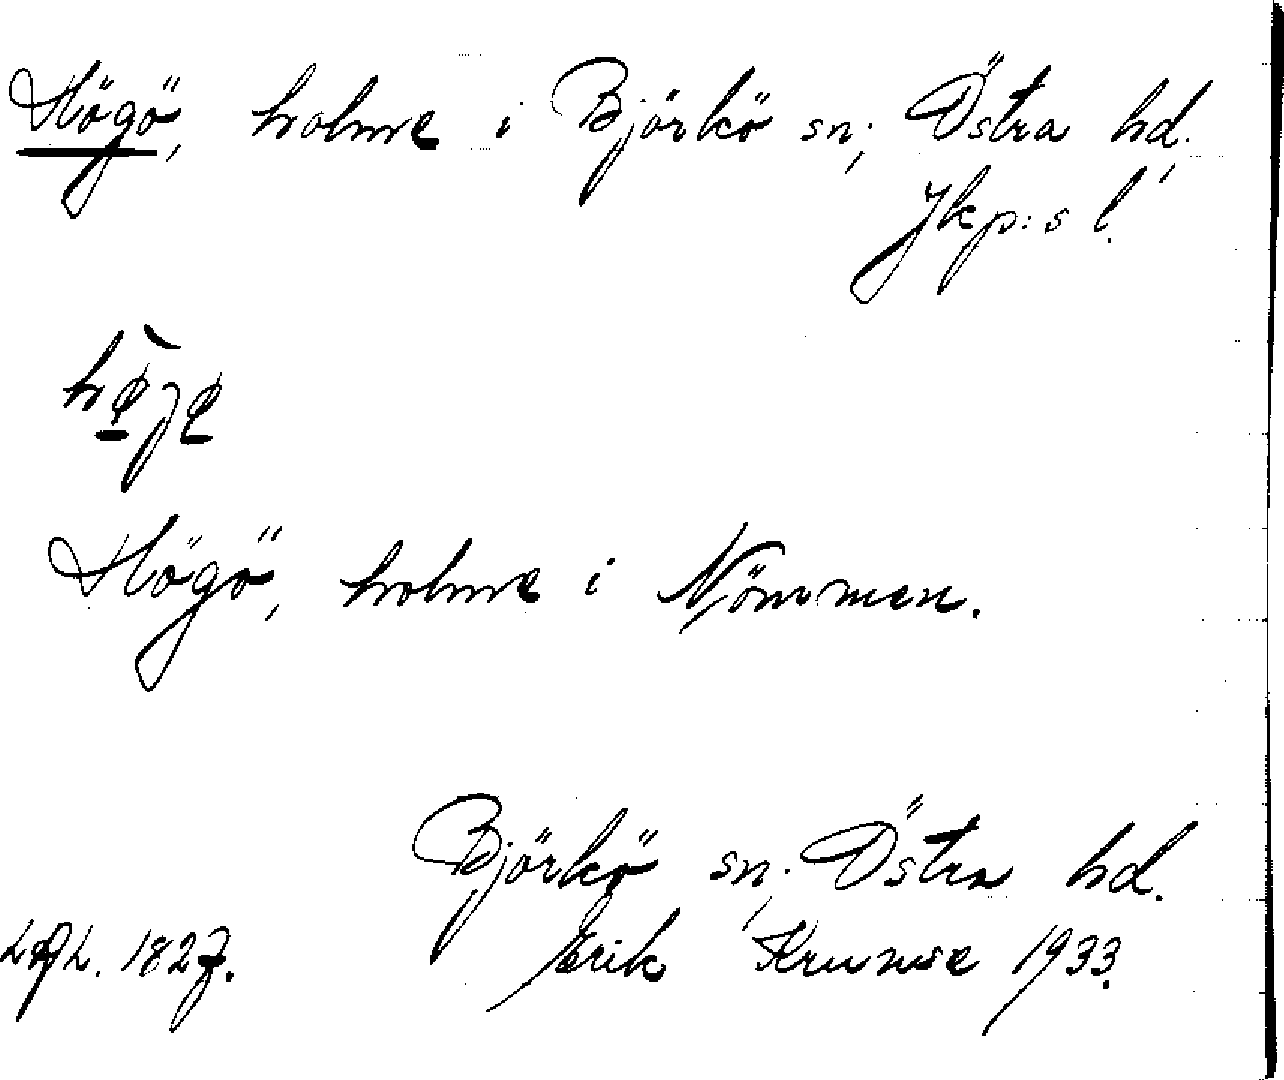 Högö, holme i Björkö sn, Östra hd,
Jkp:s l.
Högö, holme i Nömmen.
Björkö sn, Östra hd.
1827. Erik Krumse 1933.